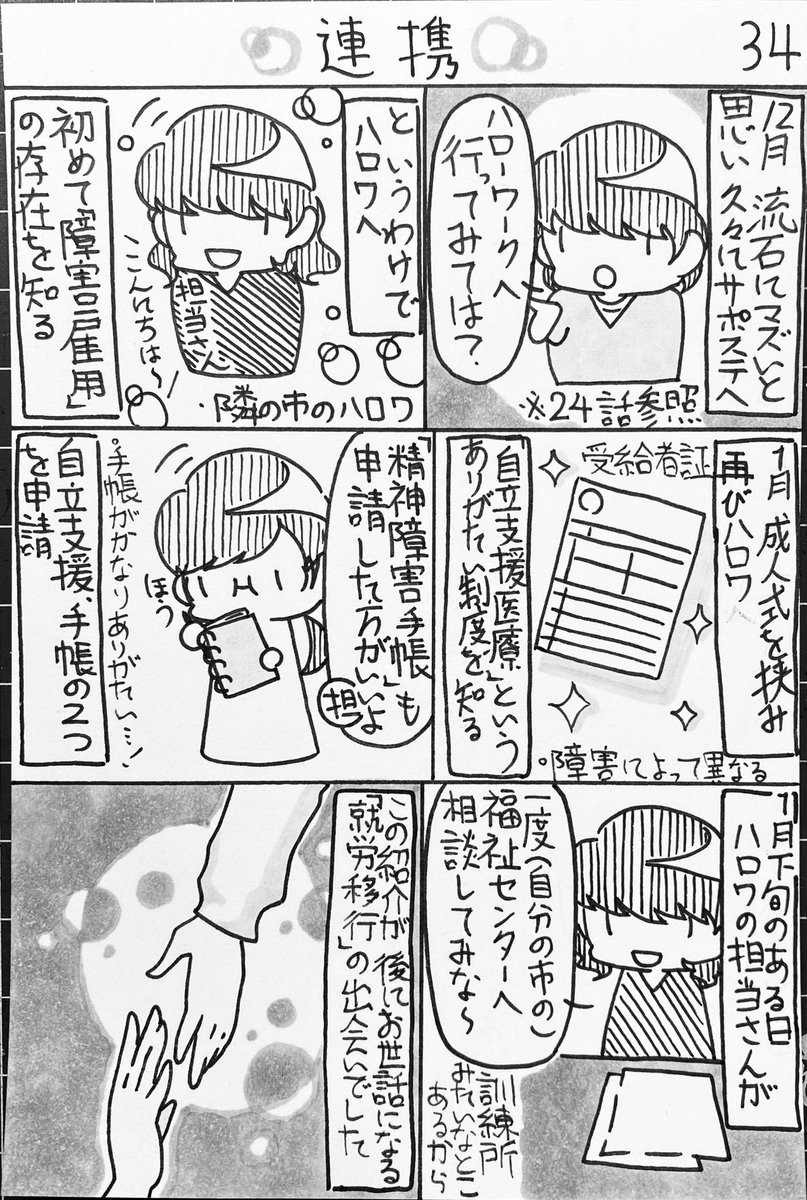 連携
34
12月 流石にマズいと
思い 久々にサポステへ
ハローワークへ
行ってみては?
※24話参照
というわけで
ハロワへ
担当さん
こんにちは〜!
・隣の市のハロワ
初めて「障害雇用」
の存在を知る
1月 成人式を挟み
再びハロワ
受給者証
「自立支援医療」という
ありがたい制度を知る
。障害によって異なる
「精神障害手帳」も
申請した方がいいよ
担
ほう
。手帳がかなりありがたい…!
自立支援、手帳の2つ
を申請
11月下旬のある日
ハロワの担当さんが
一度(自分の市の)
福祉センターへ
相談してみな〜
訓練所
みたいなとこ
あるから
この紹介が 後にお世話になる
「就労移行」の出会いでした